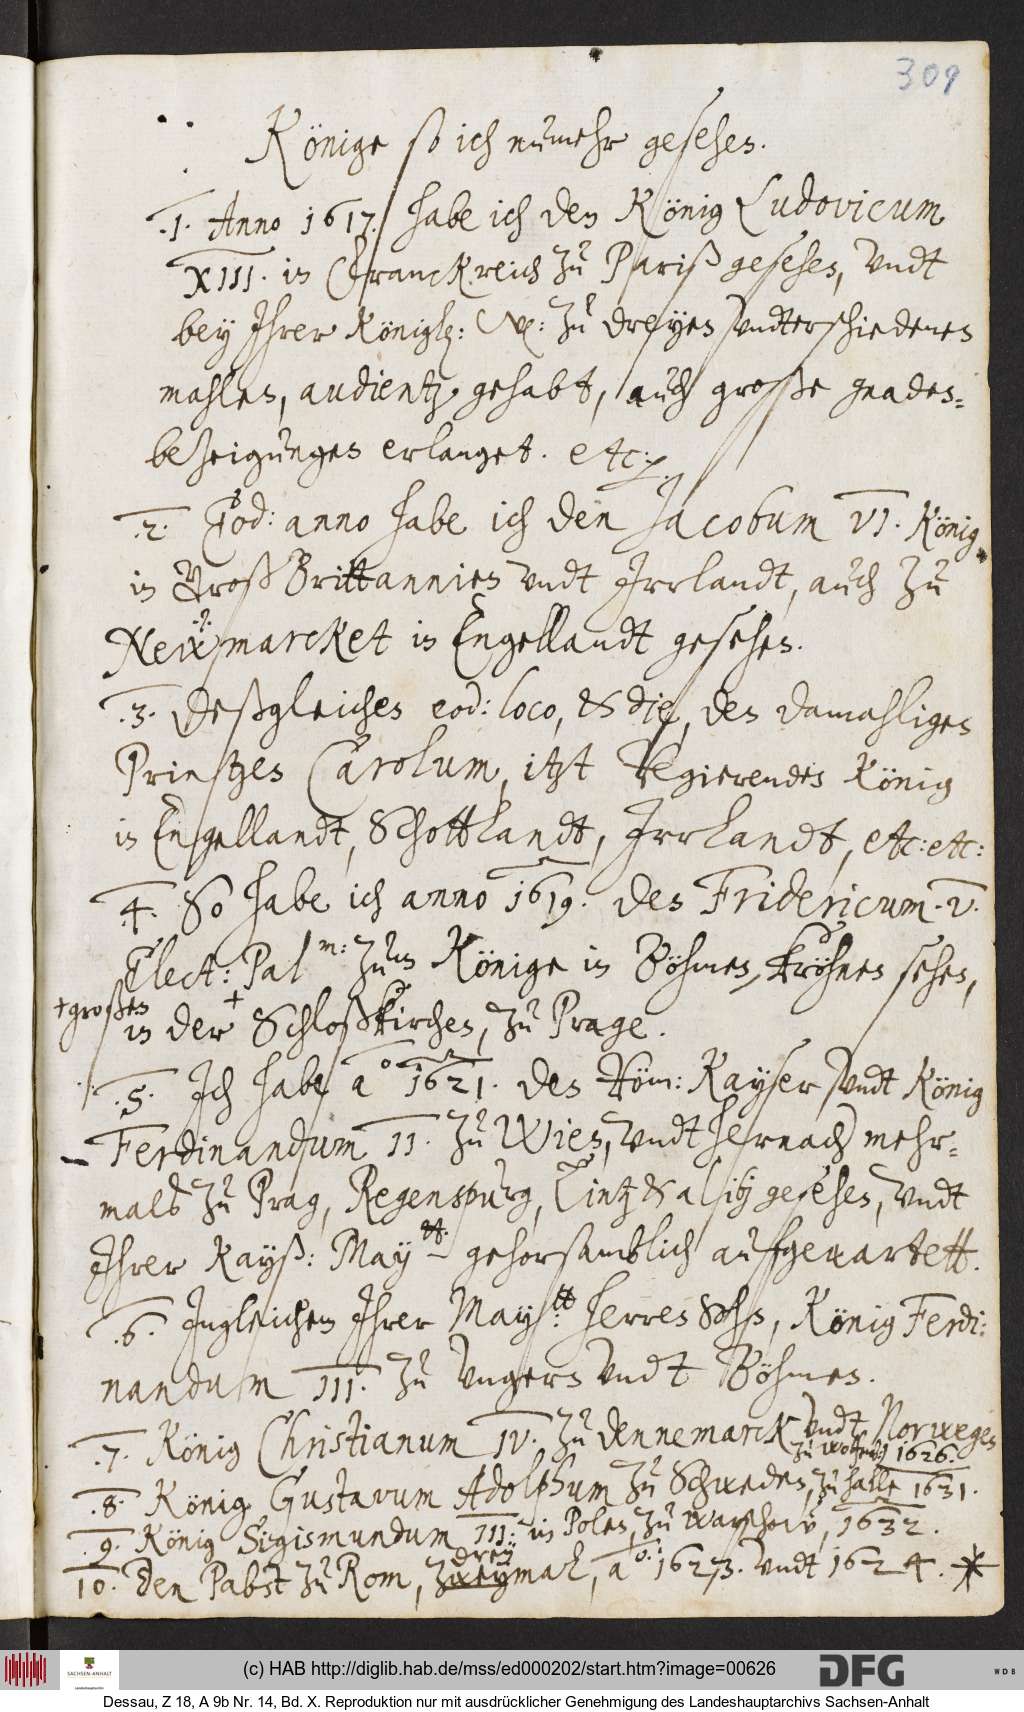 309
Könige so ich nuhmehr gesehen.
.1. Anno 1617. habe ich den König Ludovicum
XIII. in Franckreich zu Pariß gesehen, vndt
bey Ihrer Königl: W: zu dreyen vndterschiedenen
mahlen, audientz gehabt, auch große gnaden-
bezeigungen erlanget. etc:
.2. Eod: anno habe ich den Jacobum VI. König
in GroßBrittannien vndt Irrlandt, auch zu
Neümarcket in Engellandt gesehen.
.3. Deßgleichen eod: loco, & die, den damahligen
Printzen Carolum, itzt Regierenden König
in Engellandt, Schottlandt, Irrlandt, etc: etc:
.4. So habe ich anno 1619. den Fridericum. V.
Elect: Pal m: zum Könige in Böhmen, kröhnen sehen,
+großen
in der + Schloßkirchen, zu Prage.
.5. Ich habe a o 1621. den Röm: Kayser vndt König
Ferdinandum II. zu Wien, vndt hernach mehr-
mals zu Prag, Regenspurg, Lintz & alibj gesehen, vndt
Ihrer Kayß: May tt: gehorsamblich aufgewartett.
.6. Ingleichen Ihrer May tt: herren Sohn, König Ferdi:
nandum III. zu Vngern vndt Böhmen.
.7. König Christianum IV. zu Dennemarck vndt Norwegen
zu 1626.
.8. König Gustavum Adolphum zu Schweden, zu halle 1631.
.9. König Sigismundum III: in Polen, zu Warschow, 1632.
drey
10. Den Pabst zu Rom, zweymal, a o: 1623. vndt 1624. *
SACHSEN-ANHALT
(c) HAB http://diglib.hab.de/mss/ed000202/start.htm?image=00626
DFG
WDB
Dessau, Z 18, A 9b Nr. 14, Bd. X. Reproduktion nur mit ausdrücklicher Genehmigung des Landeshauptarchivs Sachsen-Anhalt